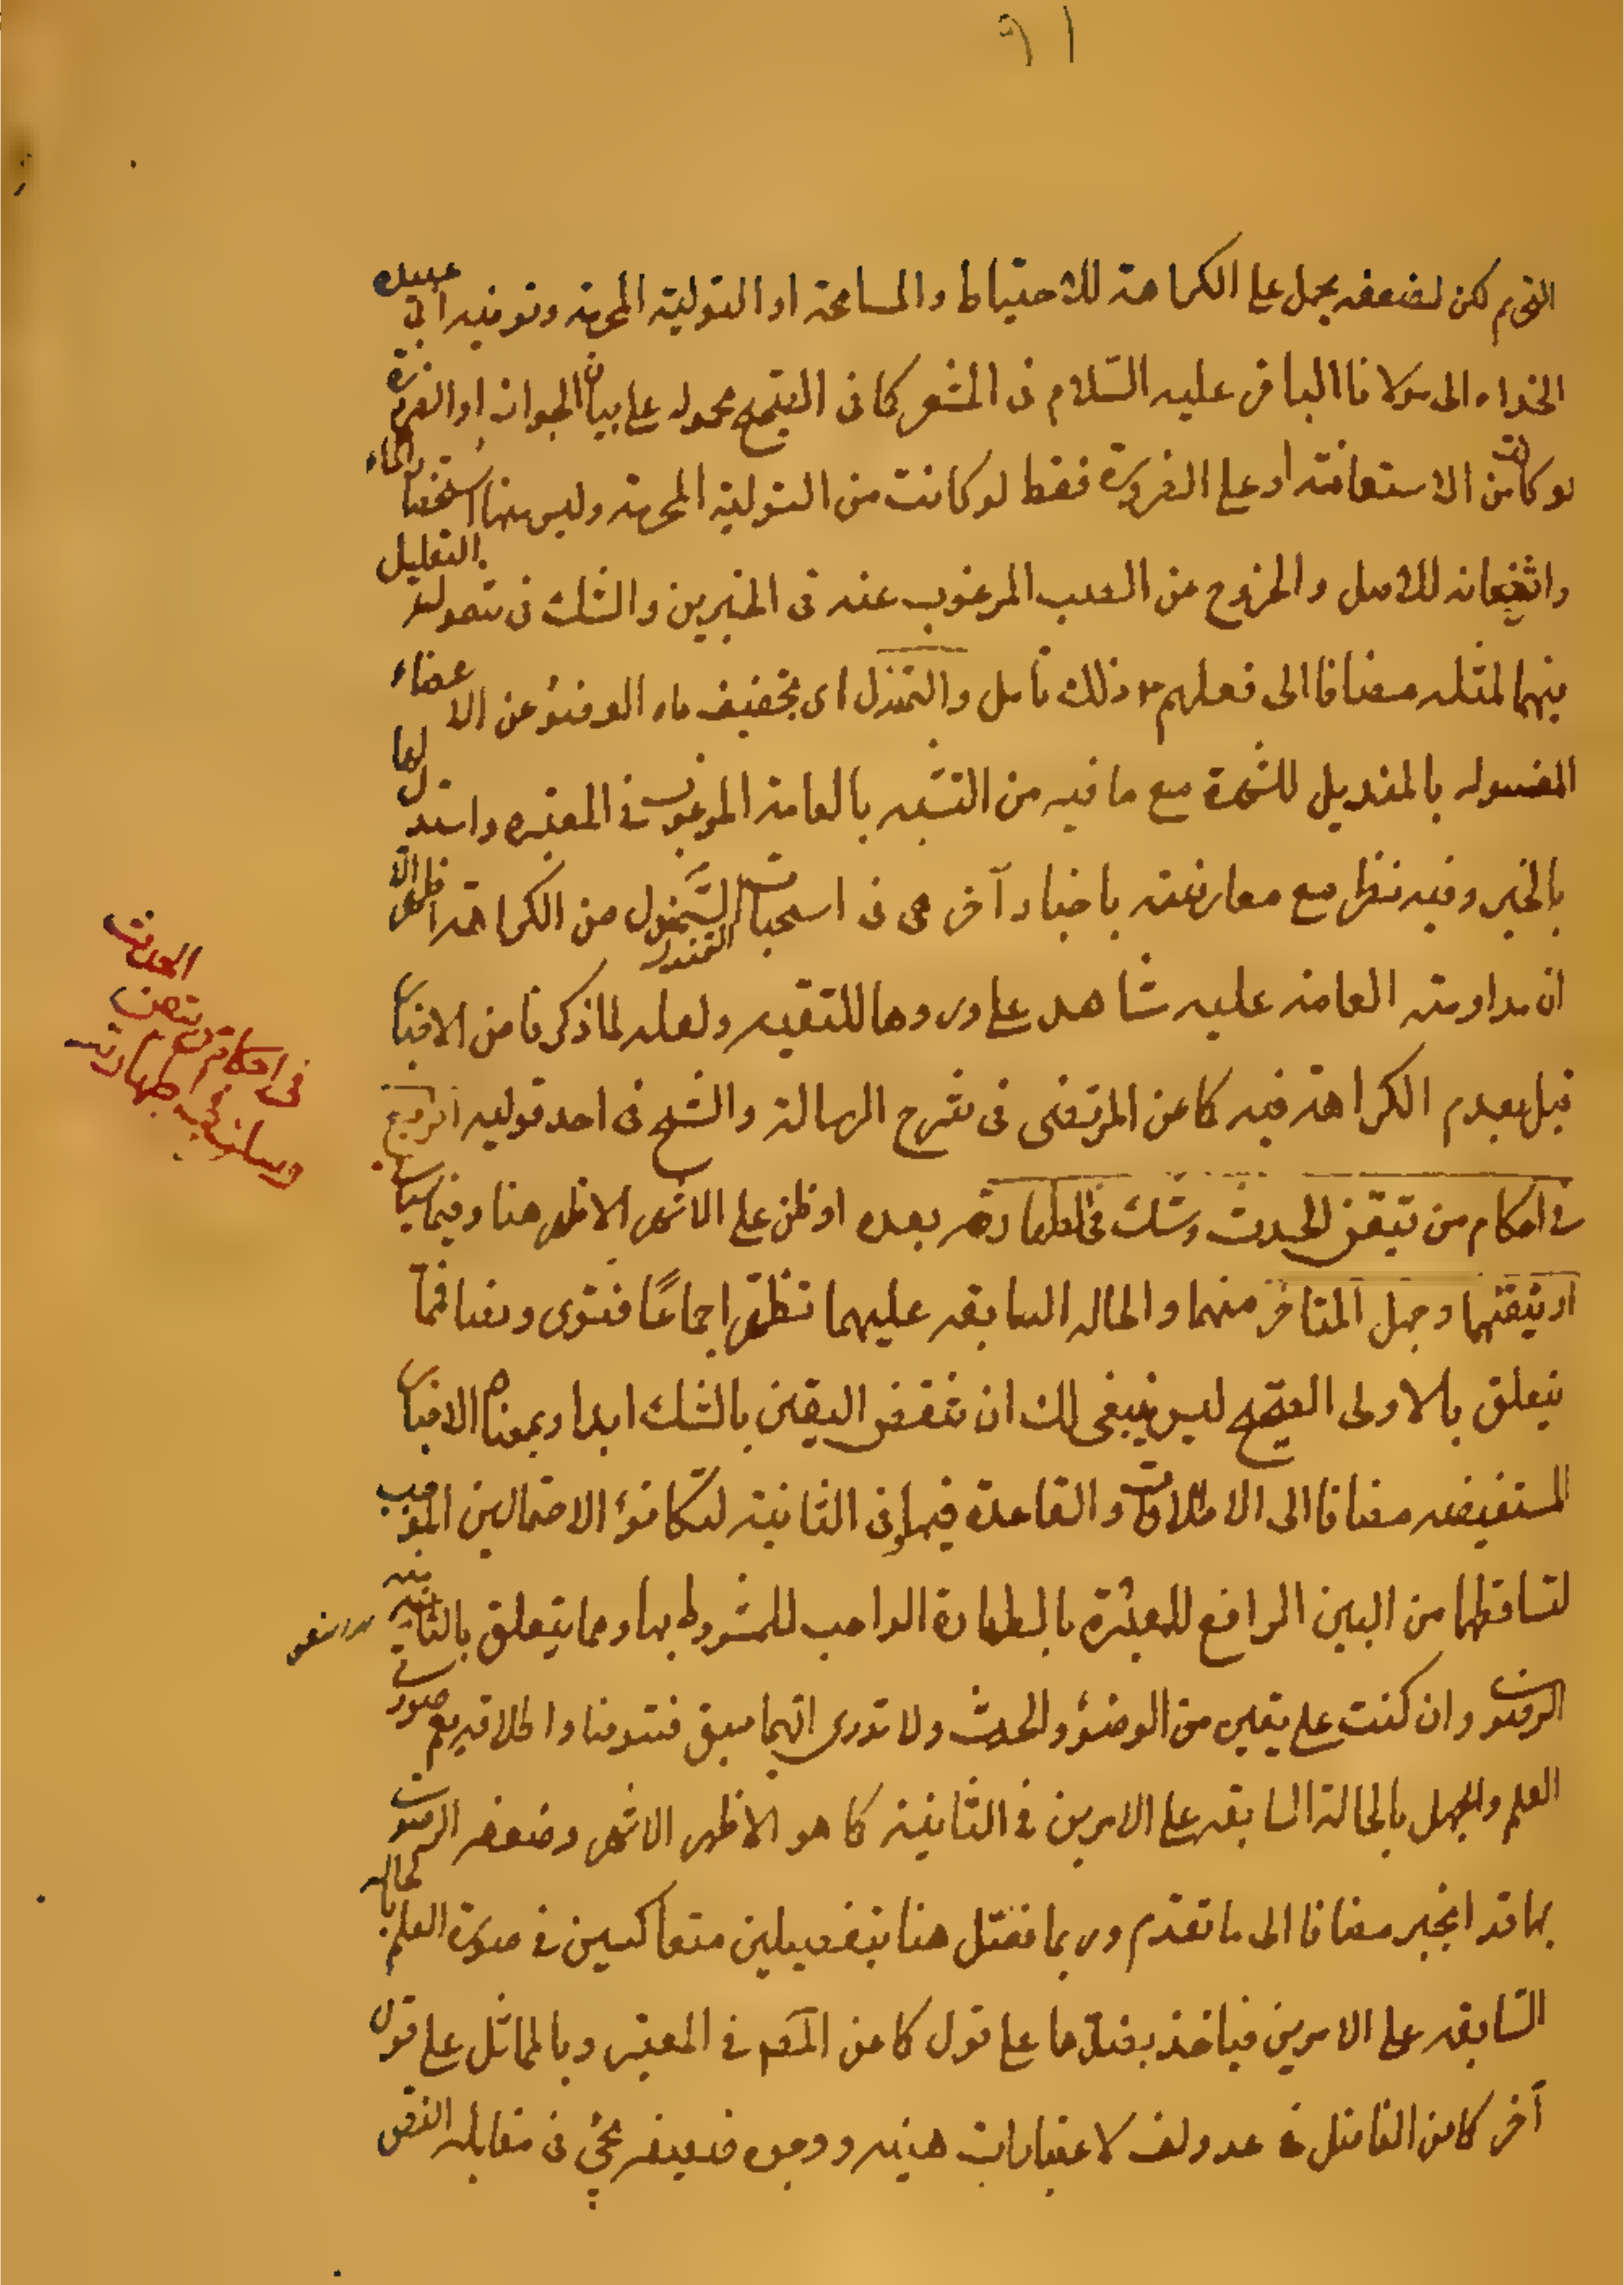 ٩١
لكن لضعفه يحمل على الكراهة للاحتياط والمسامحة او التولية المحرمة وتوضيه ابي عبيدة
الحذاء الى مولانا الباقر عليه السلام في المشعر كما في الصحيح محمول على بيان الجواز او الضرورة
لو كانت من الاستعانة او على الضرورة فقط لو كانت من التولية المحرمة وليس منها استحضار الماء
للاصل والخروج من الصب المرغوب عنه في الخبرين والشك في شمول التعليل
فيهما لمثله مضافا الى فعلهم ذلك تأمل والتمندل اى تجفيف ماء الوضوء عن الاعضاء
المغسولة بالمنديل للشهرة مع ما فيه من التشبه بالعامة المرغوب في المعتبرة واستدل لها
بالخبر وفيه نظر مع معارضته باخبار آخر هى فى استحباب التمندل من الكراهة اظهر الا
ان مداومة العامة عليه شاهد على ورودها للتقية ولعله لما ذكرنا من الاخبار
قيل بعدم الكراهة فيه كما عن المرتضى في شرح الرسالة والشيخ في احد قوليه الرابع
في احكام من تيقن الحدث وشك في الطهارة بعده او ظن على الاشهر الاظهر هنا وفيما سياتي
او تيقنهما وجهل المتاخر منهما والحالة السابقة عليهما تطهر اجماعًا فتوى ونصا فمما
يتعلق بالاولى الصحيح ليس ينبغى لك ان تنقض اليقين بالشك ابدا وبمعناه الاخبار
المستفيضة مضافا الى الاطلاقات والقاعدة فيها وفى الثانية لتكافؤ الاحتمالين الموجب
لتساقطهما من البين الرافع للعبرة بالطهارة الواجب للمشروط بها ومما يتعلق بالثانية
الرضوي وان كنت على يقين من الوضوء والحدث ولا تدرى ايهما سبق فتوضا واطلاقه يعم صورتي
العلم والجهل بالحالة السابقة على الامرين في الثانية كما هو الاظهر الاشهر وضعفه الرضوي
بها قد انجبر مضافا الى ما تقدم وربما فصل هنا بتفصيلين متعاكسين في صورة العلم بالحالة
السابقة على الامرين فياخذ بضدها على قول كما عن المصنف في المعتبر وبالمماثل على قول
آخر كما عن الفاضل في عدة ولف لاعتبارات هينة ووجوه ضعيفة هى في مقابلة النص
الحدث
تيقن
في احكام من